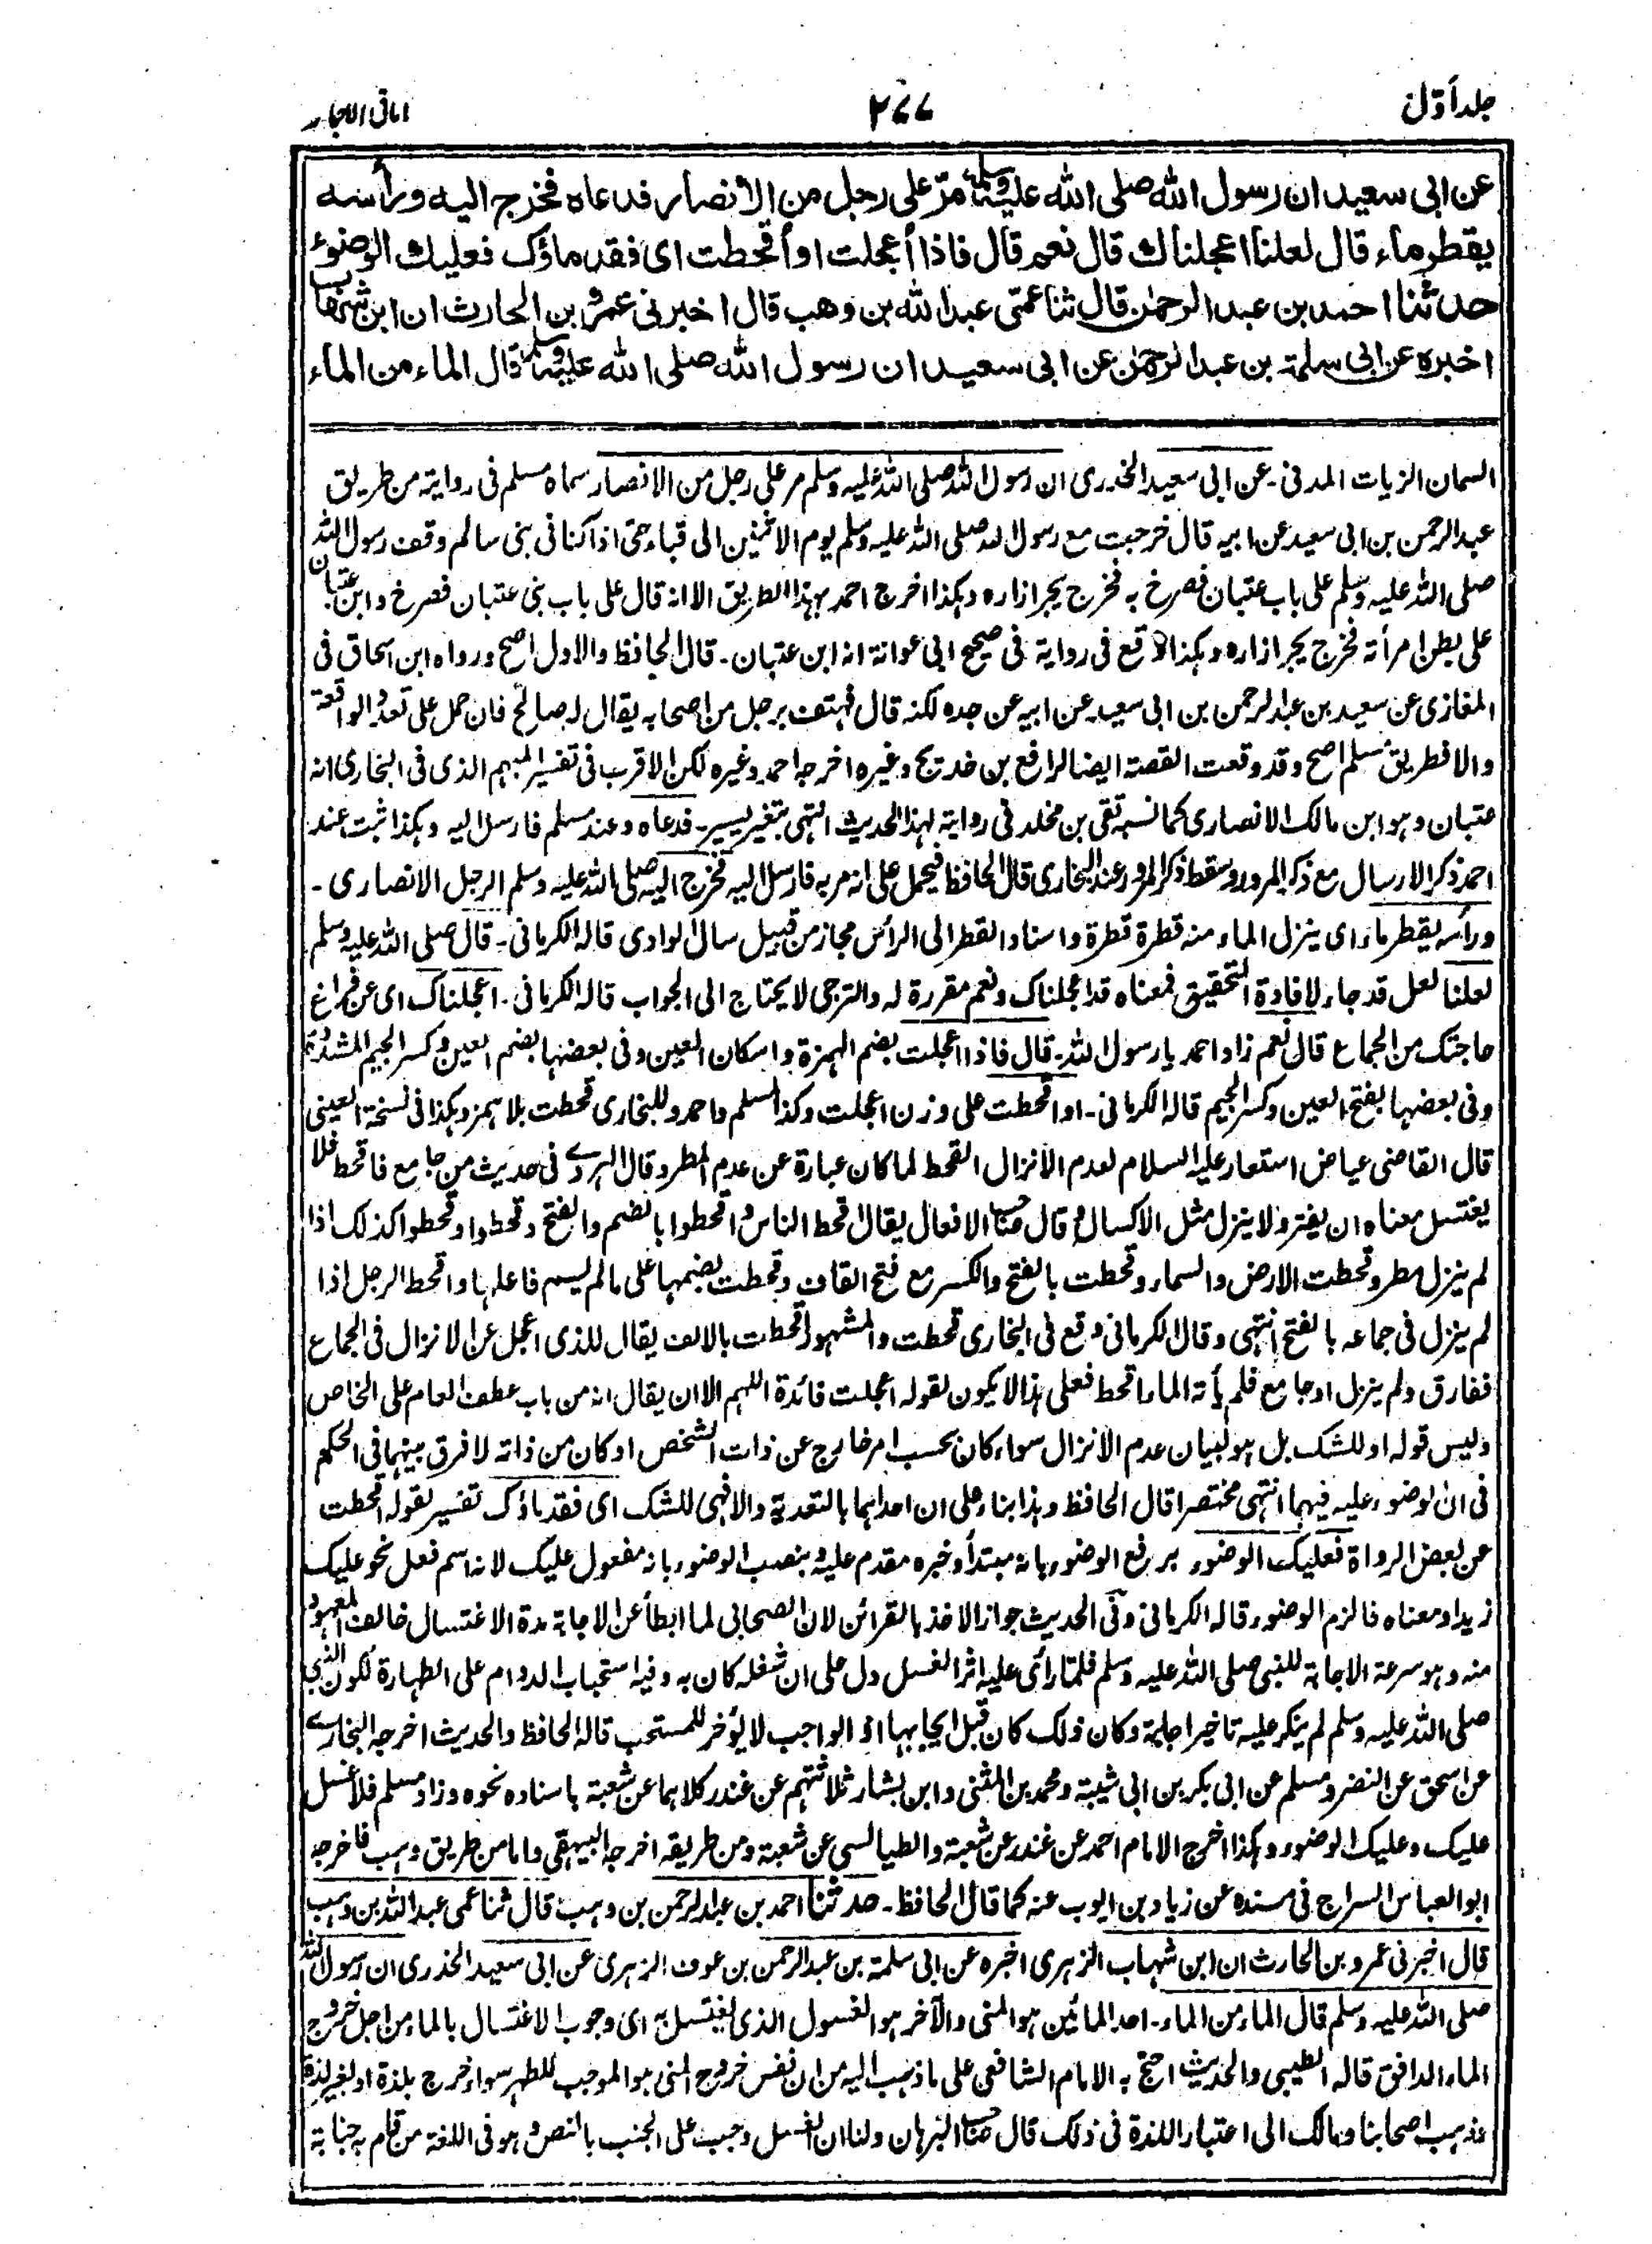 جلد اوّل ۲۷۷ امانی الاحبار
عن ابی سعید ان رسول الله صلی الله علیه وسلم مرّ علی رجل من الانصار فدعاه فخرج الیه ورأسه
یقطر ماء قال لعلنا اعجلناك قال نعم قال فاذا أعجلت او أقحطت ای فقد ماؤك فعلیك الوضوء
حدثنا احمد بن عبد الرحمٰن قال ثنا عمّی عبد الله بن وهب قال اخبرنی عمرو بن الحارث ان ابن شهاب
اخبره عن ابی سلمة بن عبد الرحمٰن عن ابی سعید ان رسول الله صلی الله علیه وسلم قال الماء من الماء
السمان الزیات المدنی ۔ عن ابی سعید الخدری ان رسول الله صلی الله علیه وسلم مر علی رجل من الانصار سماه مسلم فی روایة من طریق
عبد الرحمن بن ابی سعید عن ابیه قال خرجت مع رسول الله صلی الله علیه وسلم یوم الاثنین الی قباء حتی اذا کنا فی بنی سالم وقف رسول الله
صلی الله علیه وسلم علی باب عتبان فصرخ به فخرج یجر ازاره وهکذا اخرج احمد بهذا الطریق الا انه قال علی باب بنی عتبان فصرخ وابن عتبان
علی بطن امرأته فخرج یجر ازاره وهکذا وقع فی روایة فی صحیح ابی عوانة انه ابن عتبان ۔ قال الحافظ والاول اصح ورواه ابن اسحاق فی
المغازی عن سعید بن عبد الرحمن بن ابی سعید عن ابیه عن جده لکنه قال فهتف برجل من اصحابه یقال له صالح فان حمل علی تعدد الواقعة
والا فطریق مسلم اصح وقد وقعت القصة ایضا لرافع بن خدیج وغیره اخرجه احمد وغیره لکن الاقرب فی تفسیر المبهم الذی فی البخاری انه
عتبان وهو ابن مالک الانصاری کما نسبه تقی بن مخلد فی روایة لهذا الحدیث انتهی بتغیر یسیر ۔ فدعاه وعند مسلم فارسل الیه وهکذا ثبت عند
احمد ذکر الارسال مع ذکر المرور وسقط ذکر المرور عند البخاری قال الحافظ فیحمل علی انه مر به فارسل الیه فخرج الیه صلی الله علیه وسلم الرجل الانصاری ۔
ورأسه یقطر ماء ای ینزل الماء منه قطرة قطرة واسناد القطر الی الرأس مجاز من قبیل سال الوادی قاله الکرمانی ۔ قال صلی الله علیه وسلم
لعلنا لعل قد جاء لافادة التحقیق فمعناه قد اعجلناک ونعم مقررة له والترجی لا یحتاج الی الجواب قاله الکرمانی ۔ اعجلناک ای عن فراغ
حاجتک من الجماع قال نعم زاد احمد یا رسول الله ۔ قال فاذا اعجلت بضم الهمزة واسکان العین وفی بعضها بضم العین وکسر الجیم المشددة
وفی بعضها بفتح العین وکسر الجیم قاله الکرمانی ۔ او اقحطت علی وزن اعجلت وکذا لمسلم واحمد وللبخاری قحطت بلا همز وهکذا فی نسخة العینی
قال القاضی عیاض استعار علیه السلام لعدم الانزال القحط لما کان عبارة عن عدم المطر وقال الهروی فی حدیث من جامع فاقحط فلا
یغتسل معناه ان یفتر ولا ینزل مثل الاکسال وقال صاحب الافعال یقال قحط الناس واقحطوا بالضم والفتح وقحطوا وقحطوا کذلک اذا
لم ینزل مطر وقحطت الارض والسماء وقحطت بالفتح والکسر مع فتح القاف وقحطت بضمها علی مالم یسم فاعلها واقحط الرجل اذا
لم ینزل فی جماعه بالفتح انتهی وقال الکرمانی وقع فی البخاری قحطت والمشهور اقحطت بالالف یقال للذی اعجل عن الانزال فی الجماع
ففارق ولم ینزل او جامع فلم یأته الماء اقحط فعلی هذا لا یکون لقوله اعجلت فائدة اللهم الا ان یقال انه من باب عطف العام علی الخاص
ولیس قوله او للشک بل هو لبیان عدم الانزال سواء کان بحسب امر خارج عن ذات الشخص او کان من ذاته لا فرق بینهما فی الحکم
فی ان الوضوء علیه فیهما انتهی مختصرا قال الحافظ وهذا بناء علی ان احداهما بالتعدیة والا فهی للشک ای فقد ماؤک تفسیر لقوله اقحطت
عن بعض الرواة فعلیک الوضوء برفع الوضوء بانه مبتدأ وخبره مقدم علیه وبنصب الوضوء بانه مفعول علیک لانه اسم فعل نحو علیک
زیدا ومعناه فالزم الوضوء قاله الکرمانی وفی الحدیث جواز الاخذ بالقرائن لان الصحابی لما ابطأ عن الاجابة مدة الاغتسال خالف المعهود
منه وهو سرعة الاجابة للنبی صلی الله علیه وسلم فلما رأی علیه اثر الغسل دل علی ان شغله کان به وفیه استحباب الدوام علی الطهارة لکون النبی
صلی الله علیه وسلم لم ینکر علیه تاخیر اجابته وکان ذلک کان قبل ایجابها اذ الواجب لا یؤخر للمستحب قاله الحافظ والحدیث اخرجه البخاری
عن اسحق عن النضر ومسلم عن ابی بکر بن ابی شیبة ومحمد بن المثنی وابن بشار ثلاثتهم عن غندر کلاهما عن شعبة باسناده نحوه وزاد مسلم فلا غسل
علیک وعلیک الوضوء وهکذا اخرج الامام احمد عن غندر عن شعبة والطیالسی عن شعبة ومن طریقه اخرجه البیهقی واما من طریق وهب فاخرجه
ابو العباس السراج فی مسنده عن زیاد بن ایوب عنه کما قال الحافظ ۔ حدثنا احمد بن عبد الرحمن بن وهب قال ثنا عمی عبد الله بن وهب
قال اخبرنی عمرو بن الحارث ان ابن شهاب الزهری اخبره عن ابی سلمة بن عبد الرحمن بن عوف الزهری عن ابی سعید الخدری ان رسول الله
صلی الله علیه وسلم قال الماء من الماء ۔ احد المائین هو المنی والآخر هو الغسول الذی یغتسل به ای وجوب الاغتسال بالماء من اجل خروج
الماء الدافق قاله الطیبی والحدیث احتج به الامام الشافعی علی ما ذهب الیه من ان نفس خروج المنی هو الموجب للطهر سواء خرج بلذة او لغیر لذة
وذهب اصحابنا ومالک الی اعتبار اللذة فی ذلک قال صاحب البرهان ولنا ان الغسل وجب علی الجنب بالنص وهو فی اللغة من قام به جنابة